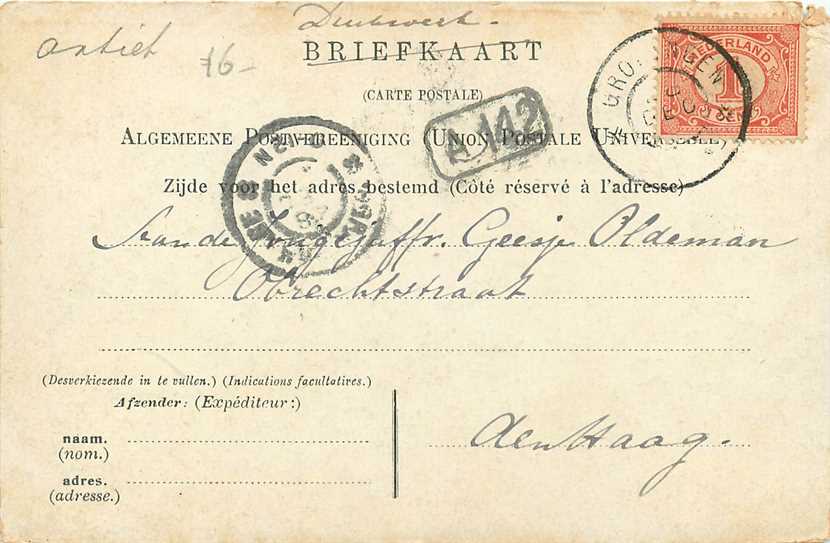 Drukwerk
antiek 76-
BRIEFKAART
(CARTE POSTALE)
NEDERLAND
1
GRONINGEN
A 142
ALGEMEENE POSTVEREENIGING (UNION POSTALE UNIVERSELLE)
Zijde voor het adres bestemd (Côté réservé à l'adresse)
Aan de Jongejuffr. Geesje Oldeman
Obrechtstraat
(Desverkiezende in te vullen.) (Indications facultatives.)
Afzender: (Expéditeur:)
naam.
(nom.)
adres.
(adresse.)
den Haag.